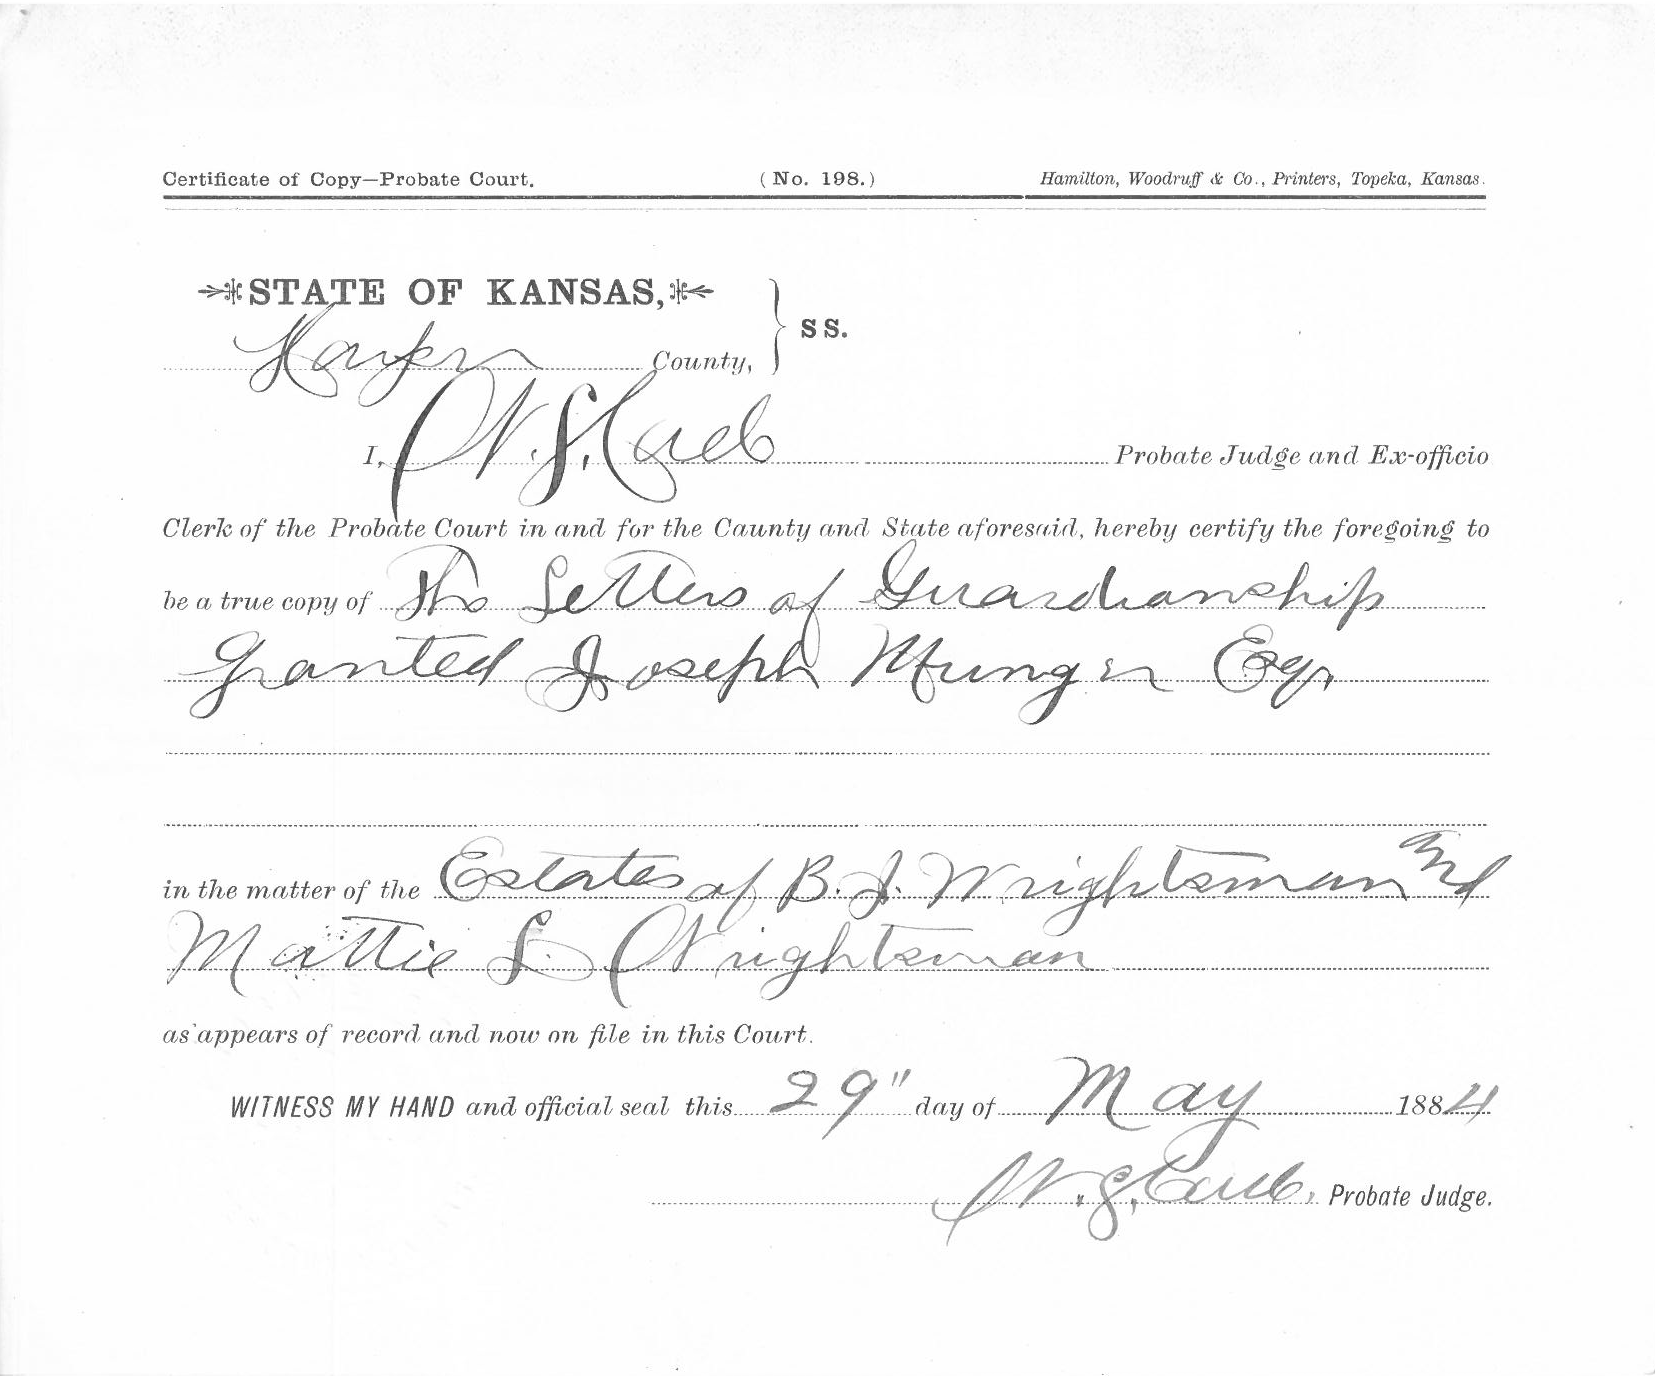 Certificate of Copy—Probate Court. (No. 198.) Hamilton, Woodruff & Co., Printers, Topeka, Kansas.
STATE OF KANSAS,
Harper County, } SS.
I, W. S. Probate Judge and Ex-officio
Clerk of the Probate Court in and for the Caunty and State aforesaid, hereby certify the foregoing to
be a true copy of The Letters of Guardianship
Granted Joseph Munger Esqr
in the matter of the Estates of B. J. Wrightsman and
Mattie L. Wrightsman
as appears of record and now on file in this Court.
WITNESS MY HAND and official seal this 29" day of May 1884
W. S. Probate Judge.